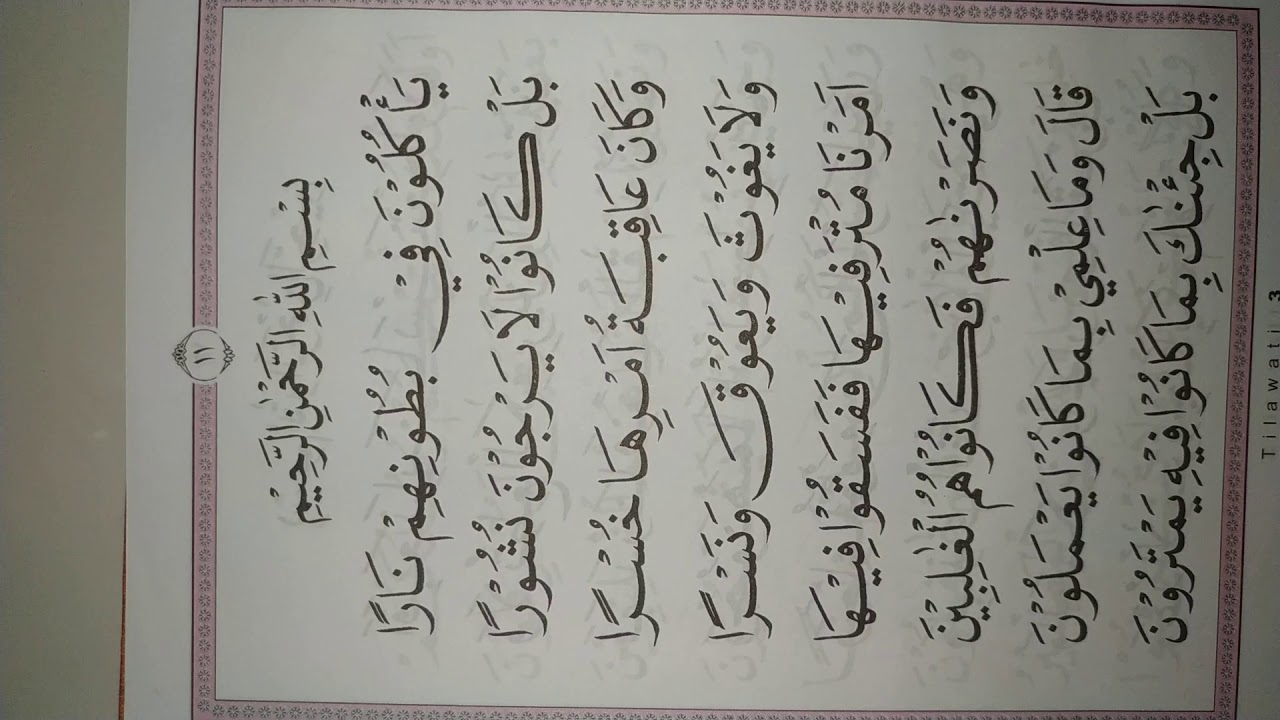 ١١
بِسْمِ اللهِ الرَّحْمٰنِ الرَّحِيْمِ
يَأْكُلُوْنَ فِيْ بُطُوْنِهِمْ نَارًا
بَلْ كَانُوْا لَا يَرْجُوْنَ نُشُوْرًا
وَكَانَ عَاقِبَةُ اَمْرِهَا خُسْرًا
وَلَا يَغُوْثَ وَيَعُوْقَ وَنَسْرًا
اَمَرْنَا مُتْرَفِيْهَا فَفَسَقُوْا فِيْهَا
وَنَصَرْنٰهُمْ فَكَانُوْا هُمُ الْغٰلِبِيْنَ
قَالَ وَمَا عِلْمِيْ بِمَا كَانُوْا يَعْمَلُوْنَ
بَلْ جِئْنٰكَ بِمَا كَانُوْا فِيْهِ يَمْتَرُوْنَ
Tilawati 3